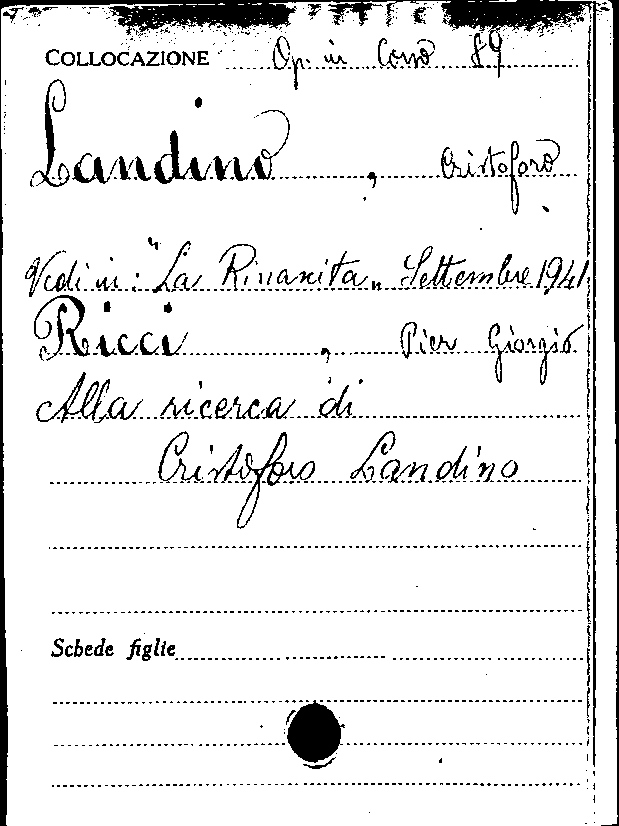 COLLOCAZIONE Op. in Corso 89
Landino, Cristoforo
Vedi in: "La Rinanita" Settembre 1941
Ricci, Pier Giorgio
Alla ricerca di
Cristoforo Landino
Schede figlie